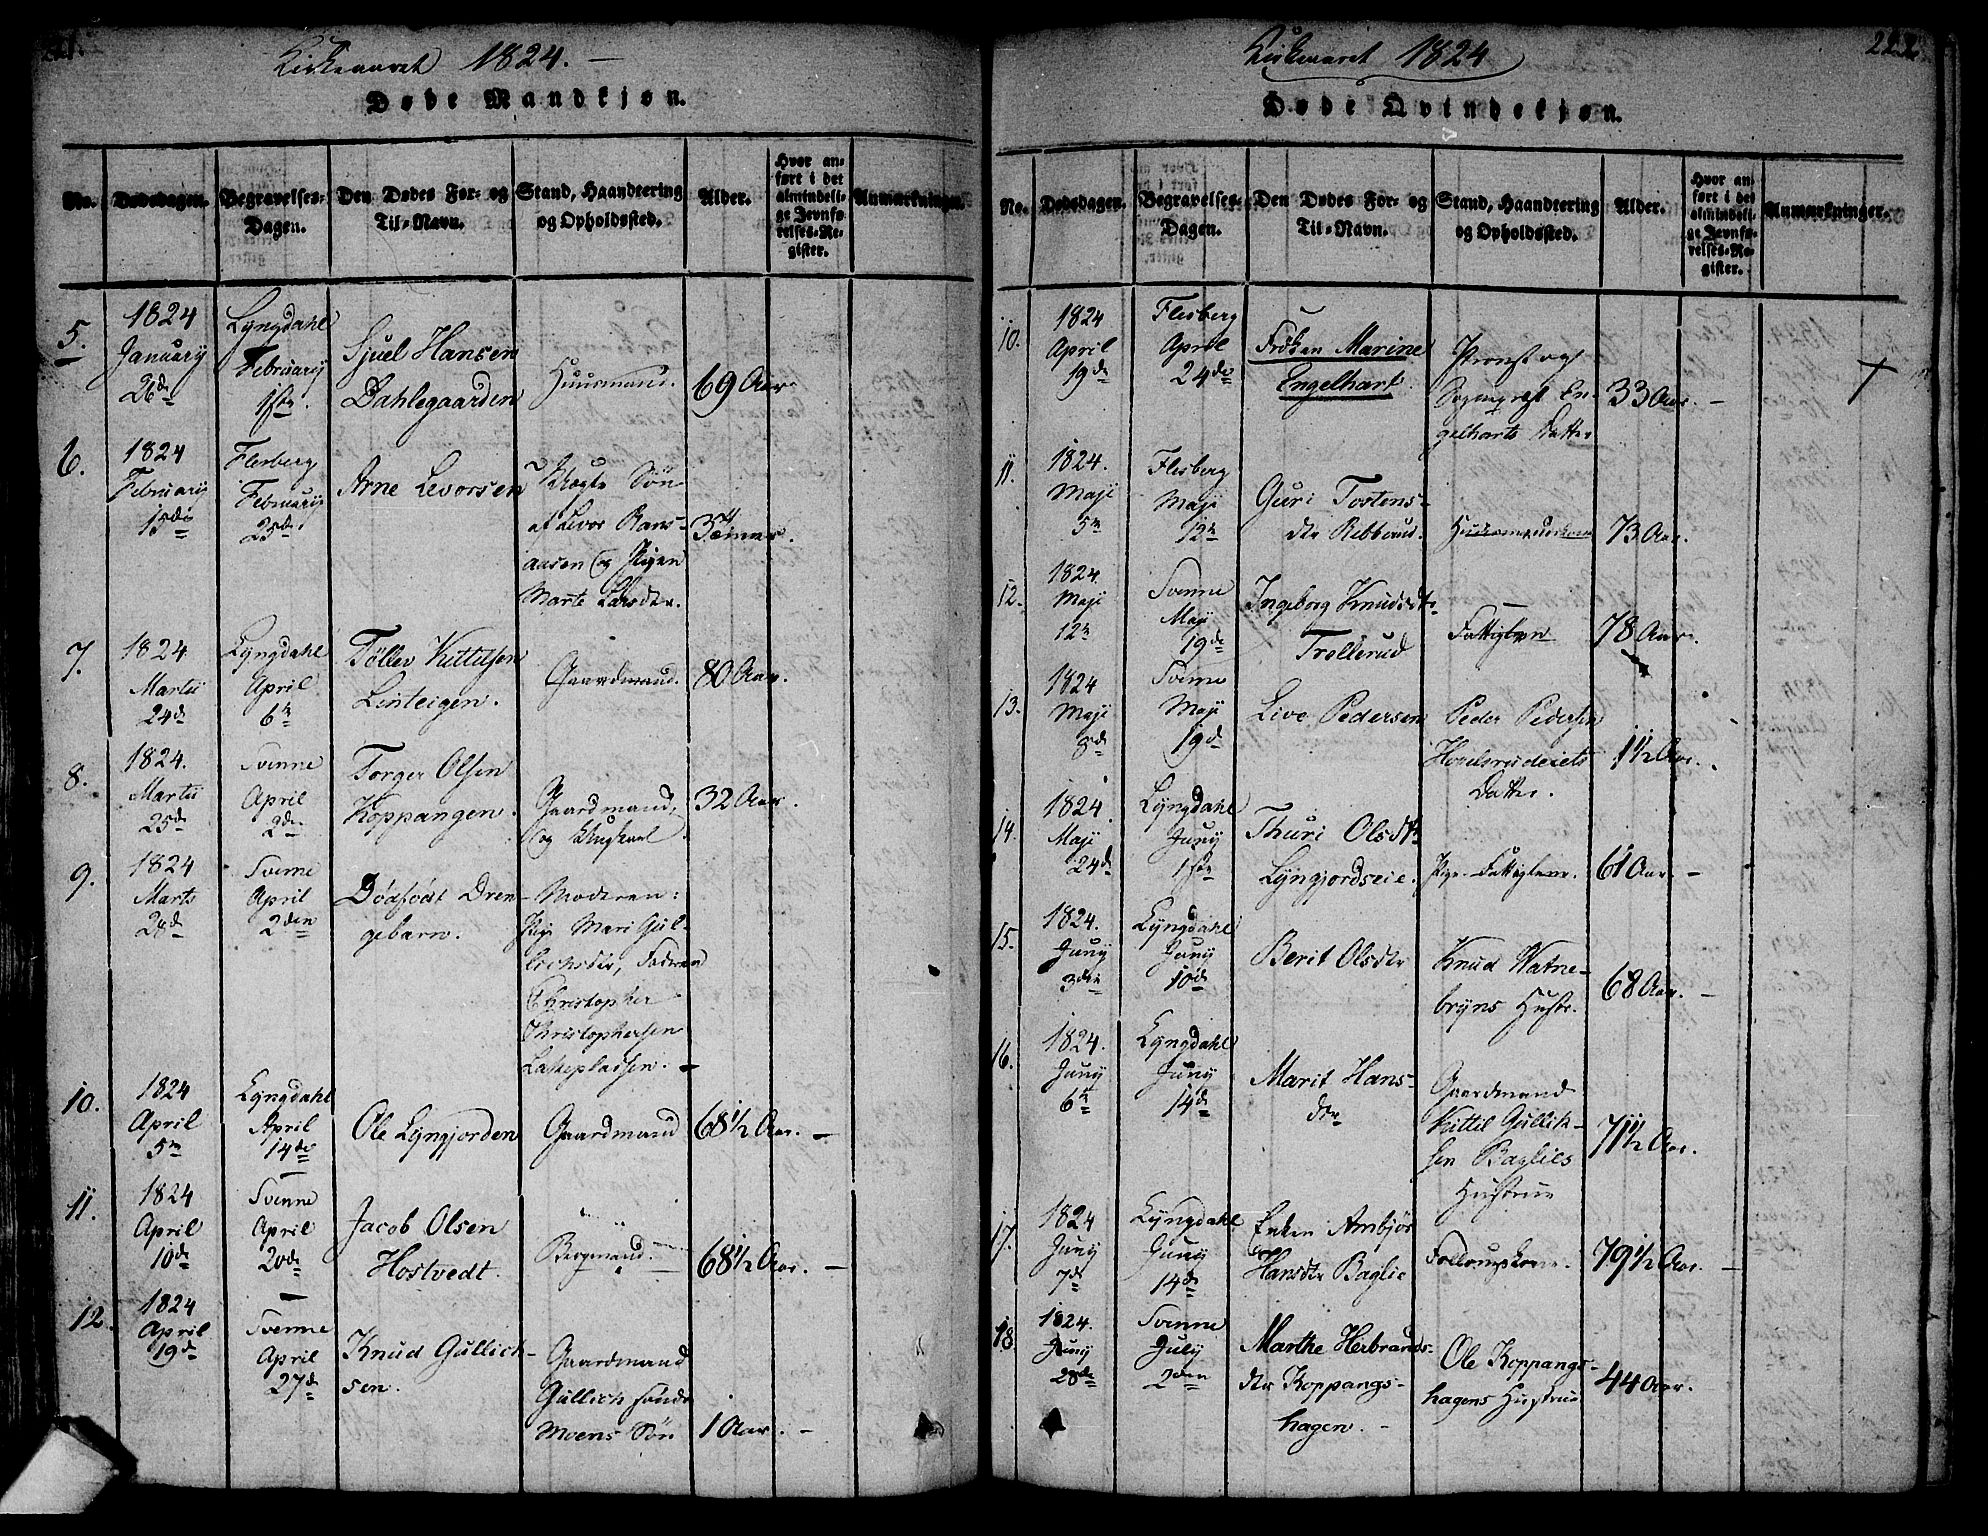 Kirkeaaret 1824.
Døde Mandkjøn.
No.
Dødsdagen.
Begravelses-
Dagen.
Den Dødes For- og
Til-Navn.
Stand, Haandtering
og Opholdssted.
Alder.
Hvor an-
ført i det
almindeli-
ge Jevnfø-
relses-Re-
gister.
Anmærkninger.
5.
1824
January
26de
Lyngdahl
Februarij
1ste.
Sjuel Hansen
Dahlegaarden
Huusmand.
69 Aar
6.
1824
Februarij
15de
Flesberg
Februarij
25de
Arne Levorsen
Uægte Søn
af Levor
aasen og Pigen
Marte Larsdtr.
7.
1824
Martii
24de
Lyngdahl
April
6te
Tollev Kittilsen
Linteigen.
Gaardmand.
80 Aar.
8.
1824.
Martii
25de
Svenne
April
2den
Torger Olsen
Koppangen.
Gaardmand,
og
32 Aar.
9.
1824
Marts
28de
Svenne
April
2den
Dødfødt Dren-
gebarn.
Moderen:
Pige Mari Gul-
lichsdtr, Faderen
Christopher
Christophersen
Lakepladsen.
10.
1824
April
5te
Lyngdahl
April
14de
Ole Lyngjorden
Gaardmand
68 1/2 Aar.
11.
1824
April
10de
Svenne
April
20de
Jacob Olsen
Hostvedt.
Bergmand.
68 1/2 Aar.
12.
1824
April
19de
Svenne
April
27de
Knud Gullich-
sen.
Gaardmand
Gullich
Moens Søn
1 Aar.
222.
Kirkeaaret 1824
Døde Qvindekjøn.
No.
Dødsdagen.
Begravelses-
Dagen.
Den Dødes For- og
Til-Navn.
Stand, Haandtering
og Opholdssted.
Alder.
Hvor an-
ført i det
almindeli-
ge Jevnfø-
relses-Re-
gister.
Anmærkninger.
10.
1824
April
19de
Flesberg
April
24de
Frøken Marine
Engelhart.
Provst og
Sogneprest En-
gelharts Datter
33 Aar.
11.
1824.
Maji
5te
Flesberg
Maji
12te
Guri Tostens-
dtr Ribberud.
Huusmandsenke
73 Aar.
12.
1824.
Maji
12te
Svenne
Maji
19de
Ingeborg Knudsdtr.
Trollerud
Fattiglem
78 Aar.
13.
1824
Maji
8de
Svenne
Maji
19de
Live Pedersen
Peder Pedersen
Datter.
1 1/2 Aar.
14.
1824.
Maji
24de
Lyngdahl
Juny
1ste
Thuri Olsdtr
Lyngjordseie.
Pige. Fattiglem.
61 Aar.
15.
1824.
Juny
3die
Lyngdahl
Juny
10de
Berit Olsdtr
Knud Vatne-
bryns Hustr.
68 Aar.
16.
1824.
Juny
6te
Lyngdahl
Juny
14de
Marit Hans-
dtr
Gaardmand
Kittil Gullich-
sen Baglies
Hustrue
71 1/2 Aar.
17.
1824
Juny
7de
Lyngdahl
Juny
14de
Enken Ambjør
Hansdtr Baglie
Follougskone.
79 1/2 Aar.
18.
1824.
Juny
28de
Svenne
July
2den
Marthe Herbrands-
dtr Koppangs-
hagen.
Ole Koppangs-
hagens Hustrue
44 Aar.